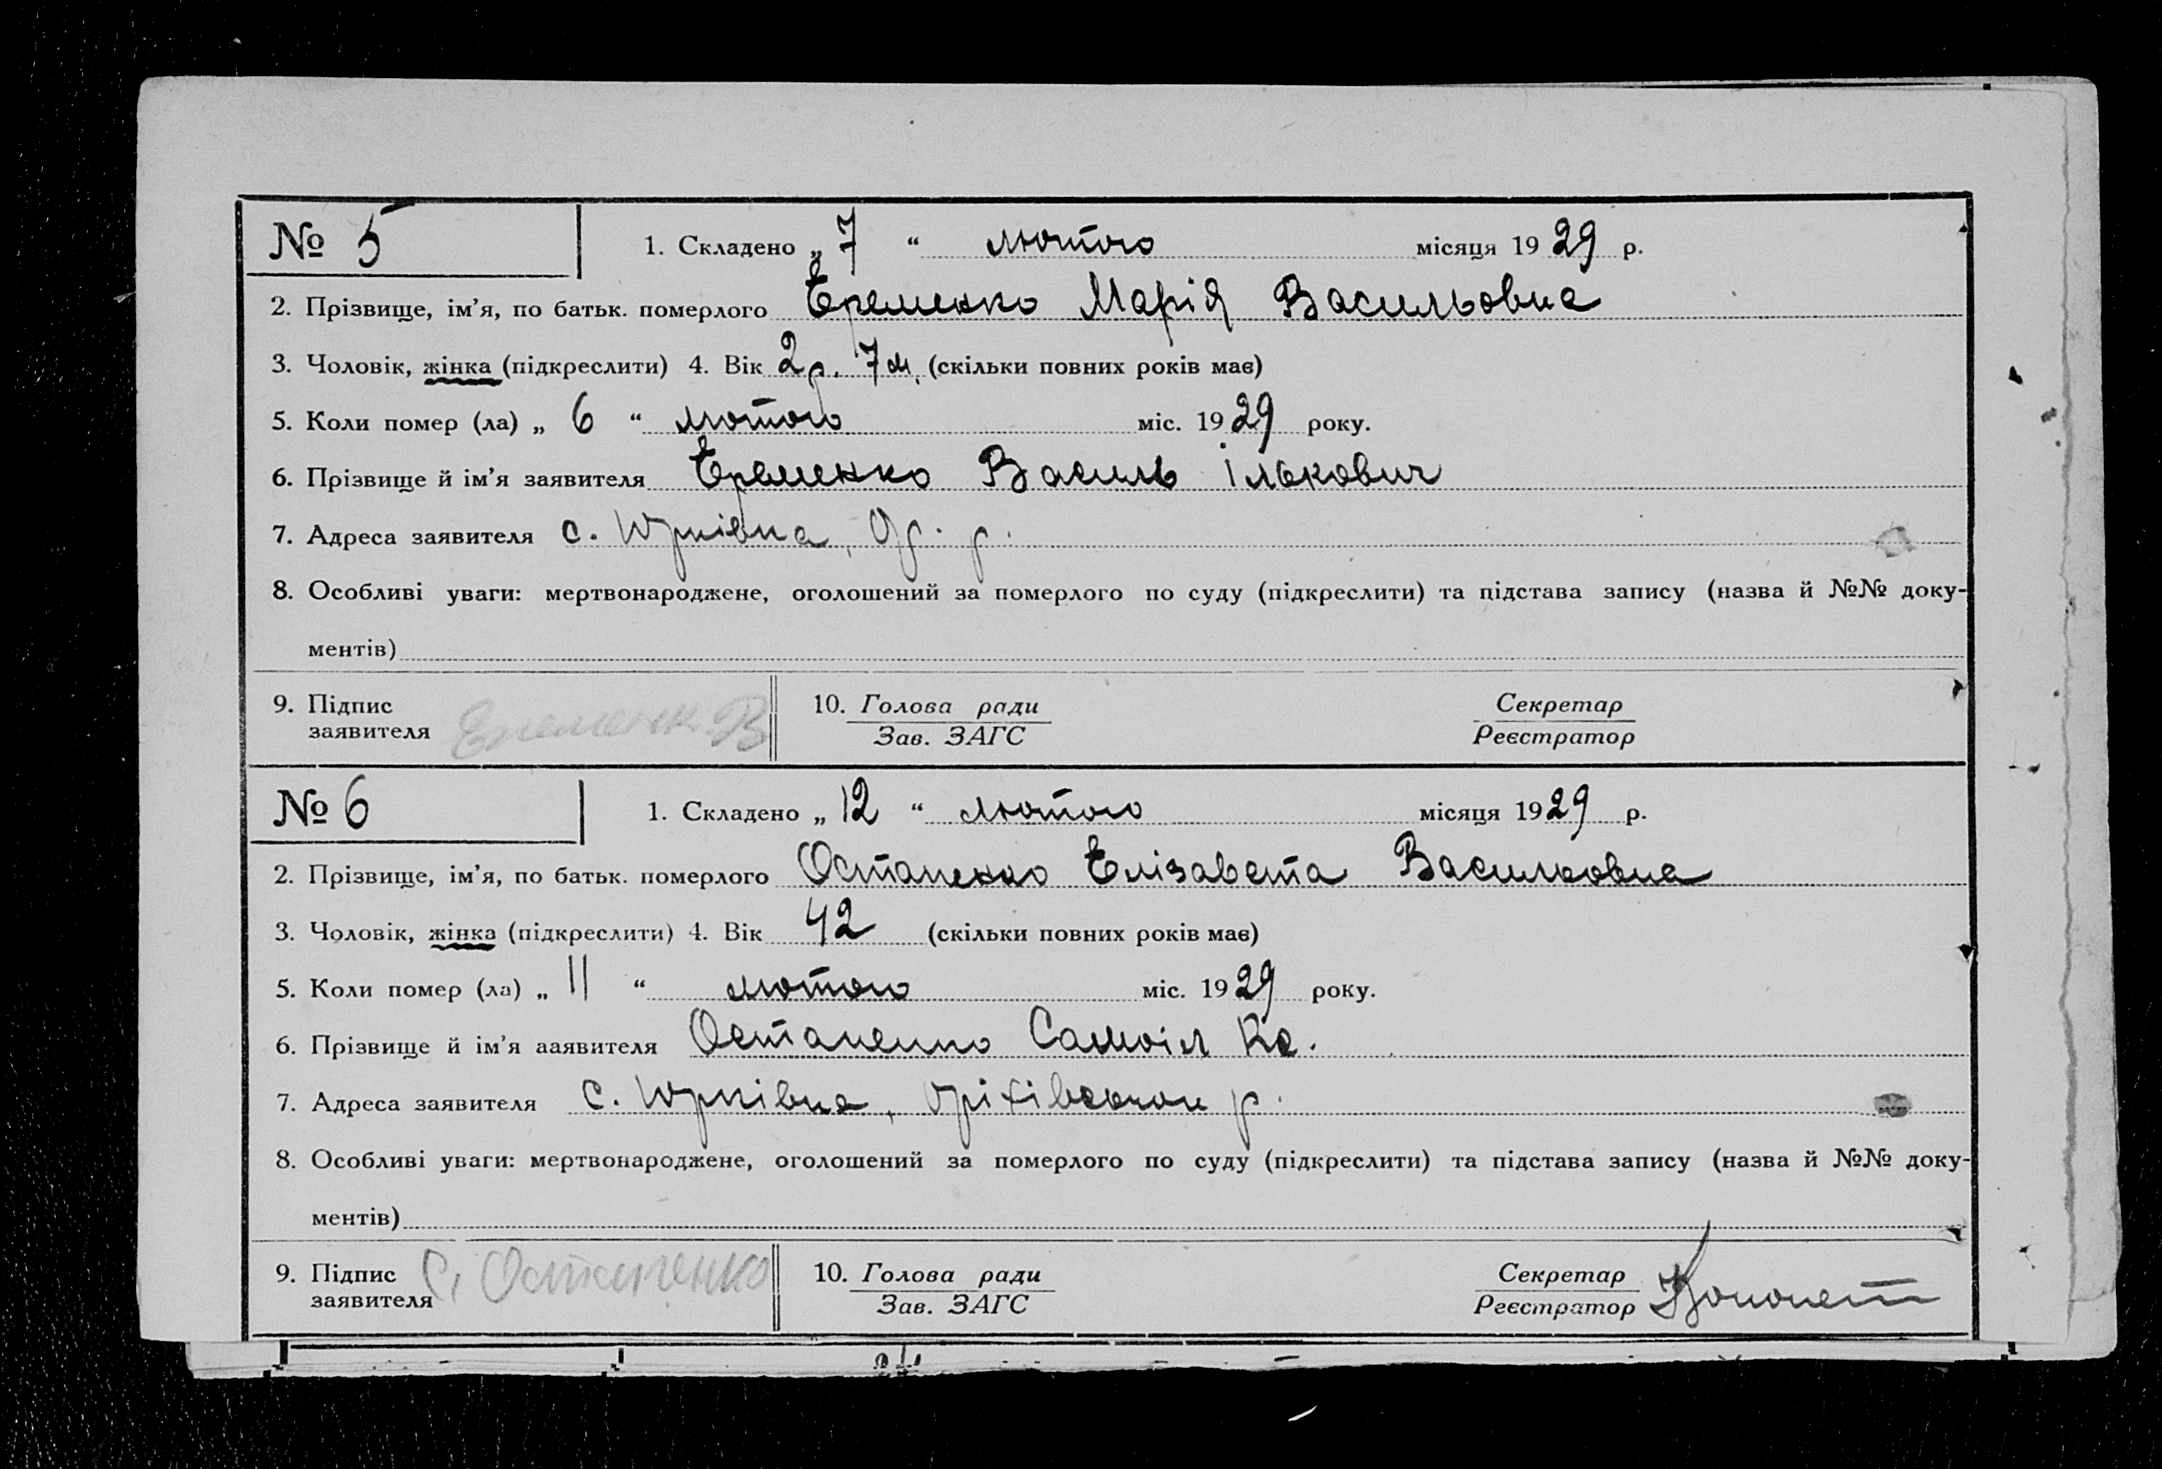 № 5
1. Складено „ 7 “ лютого місяця 1929 р.
2. Прізвище, ім’я, по батьк. померлого Еременко Марія Васильовна
3. Чоловік, жінка (підкреслити) 4. Вік 2 р. 7 м. (скільки повних років має)
5. Коли помер (ла) „ 6 “ лютого міс. 1929 року.
6. Прізвище й ім’я заявителя Еременко ВасильІлькович
7. Адреса заявителя с. Юрківка, Ор. р.
8. Особливі уваги: мертвонароджене, оголошений за померлого по суду (підкреслити) та підстава запису (назва й №№ доку-
ментів)
9. Підпис заявителя Еременк В
10. Голова ради
Зав. ЗАГС
Секретар
Реєстратор
№ 6
1. Складено „ 12 “ лютого місяця 1929 р.
2. Прізвище, ім’я, по батьк. померлого Остапенко Елізавета Васильовна
3. Чоловік, жінка (підкреслити) 4. Вік 42 (скільки повних років має)
5. Коли помер (ла) „ 11 “ лютого міс. 1929 року.
6. Прізвище й ім’я ааявителя Остапенко Самоіл
7. Адреса заявителя с. Юрківка, Оріхівського р.
8. Особливі уваги: мертвонароджене, оголошений за померлого по суду (підкреслити) та підстава запису (назва й №№ доку-
ментів)
9. Підпис заявителя С. Остапенко
10. Голова ради
Зав. ЗАГС
Секретар
Реєстратор